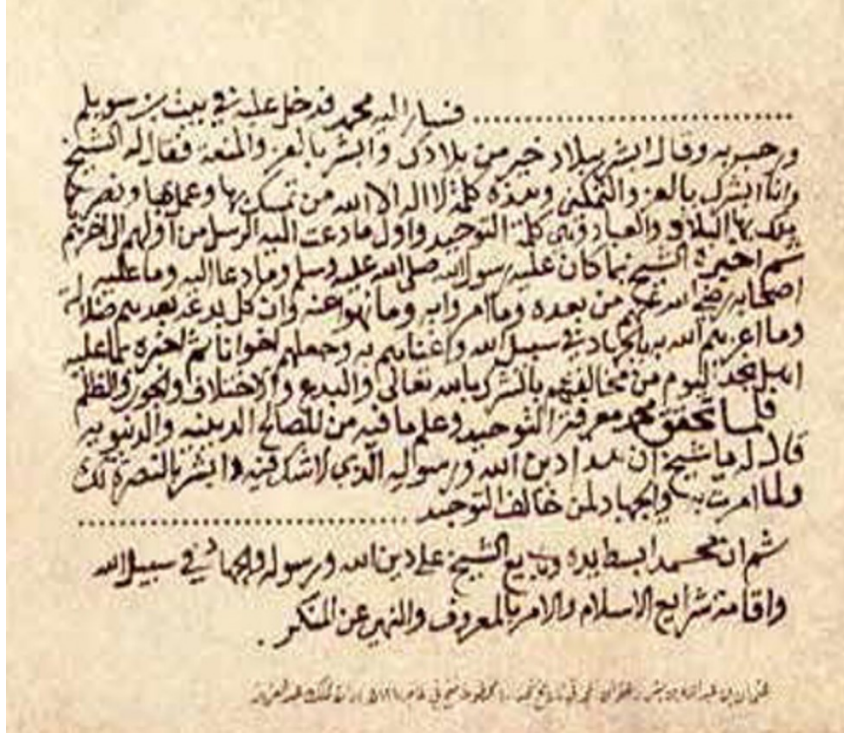 .................... فسار اليه محمد فدخل عليه في بيت بن سويلم
ورحب به وقال ابشر ببلاد خير من بلادك وابشر بالعز والمنعة فقال له الشيخ
وانا ابشرك بالعز والتمكين وهذه كلمة لا اله الا الله من تمسك بها وعمل بها ونصرها
ملك بها البلاد والعباد وهي كلمة التوحيد واول ما دعت اليه الرسل من اولهم الى اخرهم
ثم اخبره الشيخ بما كان عليه رسول الله صلى الله عليه وسلم وما دعا اليه وما عليه
اصحابه رضي الله عنهم من بعده وما امروا به وما نهوا عنه وان كل بدعة بعدهم ضلالة
وما اعزهم الله به بالجهاد في سبيل الله واغناهم به وجعلهم اخوانا ثم اخبره بما عليه
اهل نجد اليوم من مخالفتهم بالشرك بالله تعالى والبدع والاختلاف والجور والظلم
فلما تحقق محمد معرفة التوحيد وعلم ما فيه من المصالح الدينيه والدنيويه
قال له يا شيخ ان هذا دين الله ورسوله الذي لا شك فيه وابشر بالنصرة لك
ولما امرت به والجهاد لمن خالف التوحيد ....................
ثم ان محمدا بسط يده وبايع الشيخ على دين الله ورسوله والجهاد في سبيل الله
واقامة شرايع الاسلام والامر بالمعروف والنهي عن المنكر .
عثمان بن عبدالله بن بشر، عنوان المجد في تاريخ نجد، مخطوط